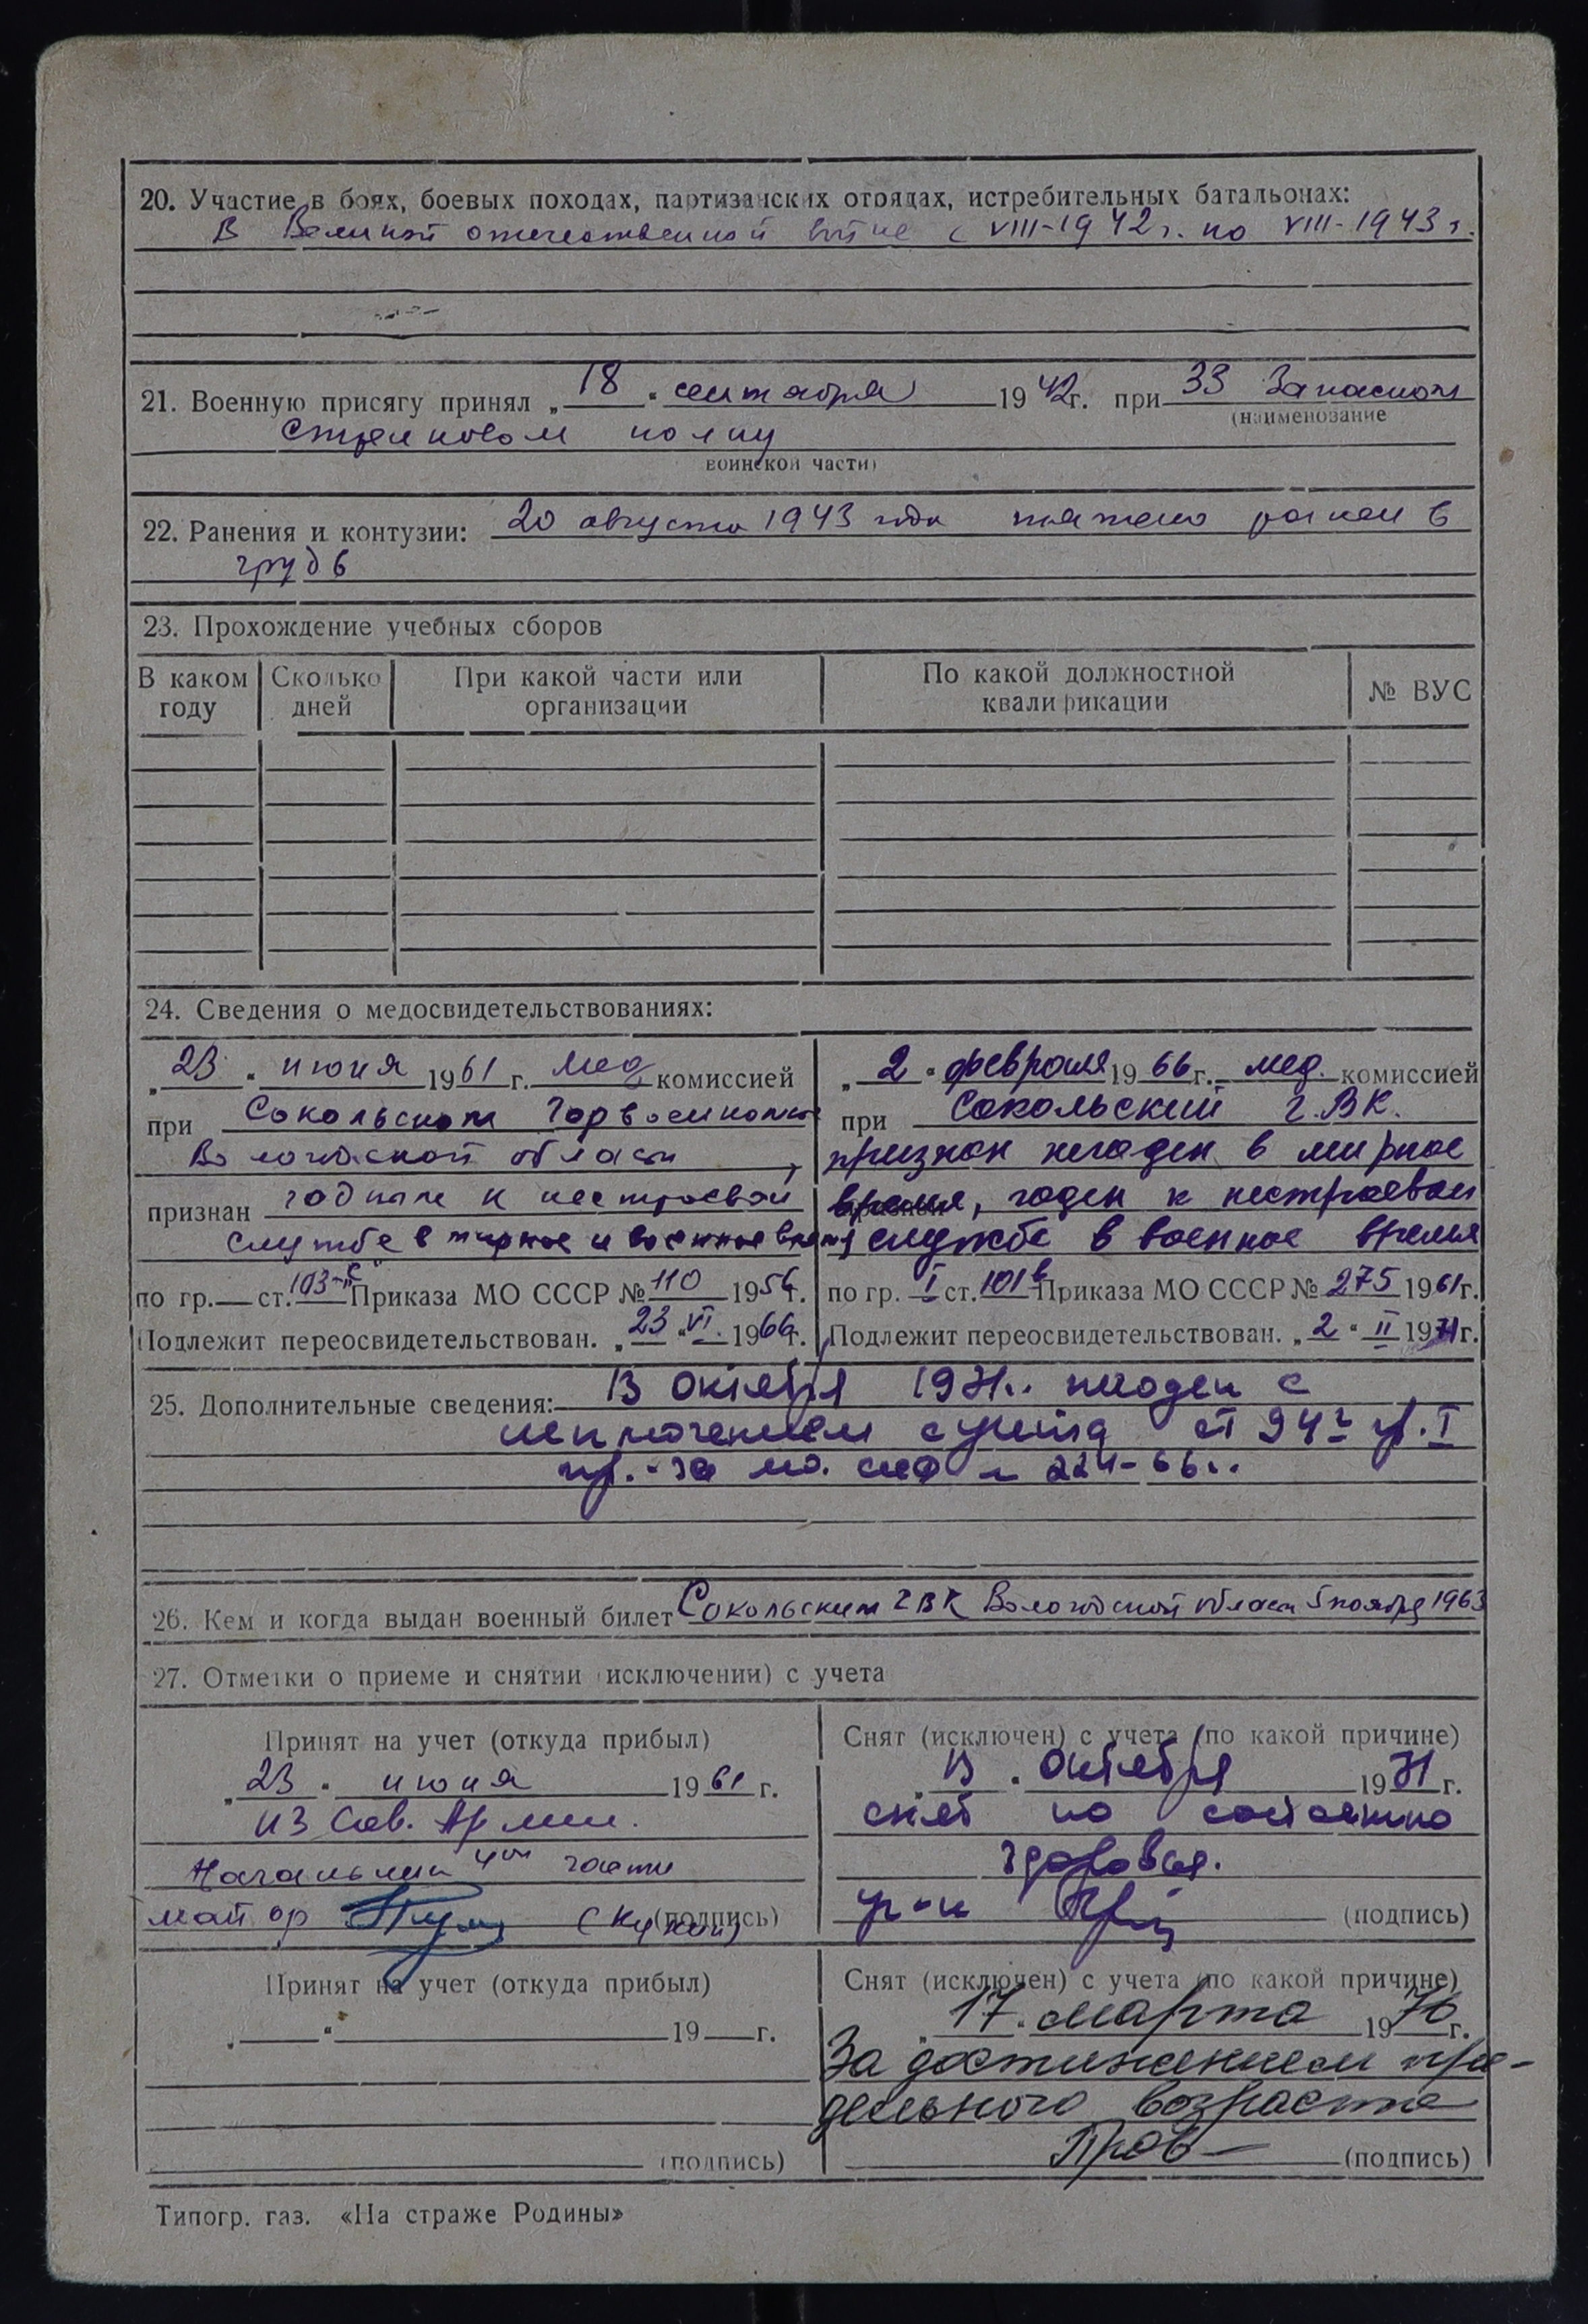 20. Участие в боях, боевых походах, партизанских отрядах, истребительных батальонах:
В Великой отечественной войне с VIII-1942 г. по VIII-1943 г.
21. Военную присягу принял „ 18 " сентября 1942г. при 33 Запасном
(наименование
стрелковом полку
воинской части)
22. Ранения и контузии: 20 августа 1943 года тяжело ранен в
грудь
23. Прохождение учебных сборов
В каком году
Сколько дней
При какой части или организации
По какой должностной квалификации
№ ВУС
24. Сведения о медосвидетельствованиях:
„ 23 " июня 1961 г. Мед комиссией
при Сокольском Горвоенкомате
Вологодской области,
признан годным к нестроевой
службе в мирное и военное время
по гр. — ст. 103-с Приказа МО СССР № 110 1956г.
Подлежит переосвидетельствован. „ 23 " VI. 1966г.
„ 2 " февраля 1966 г. мед. комиссией
при Сокольский г.ВК.
признан негоден в мирное
время, годен к нестроевой
службе в военное время
по гр. I ст. 101в Приказа МО СССР № 275 1961г.
Подлежит переосвидетельствован. „ 2 " II 1971г.
25. Дополнительные сведения: 13 октября 1971г. негоден с
исключением с учета ст 94г гр. I
пр. МО СССР № 224-66г.
26. Кем и когда выдан военный билет Сокольским ГВК Вологодской области 5 ноября 1963
27. Отметки о приеме и снятии (исключении) с учета
Принят на учет (откуда прибыл)
„ 23 " июня 1961 г.
из Сов. Армии.
Начальник 4ой части
майор (Кукин)
(подпись)
Снят (исключен) с учета (по какой причине)
„ 13 " октября 1971 г.
снят по состоянию
здоровья.
(подпись)
Принят на учет (откуда прибыл)
„ — " — 19 — г.
(подпись)
Снят (исключен) с учета (по какой причине)
„ 17 " марта 1976 г.
За достижением пре-
дельного возраста
(подпись)
Типогр. газ. «На страже Родины»